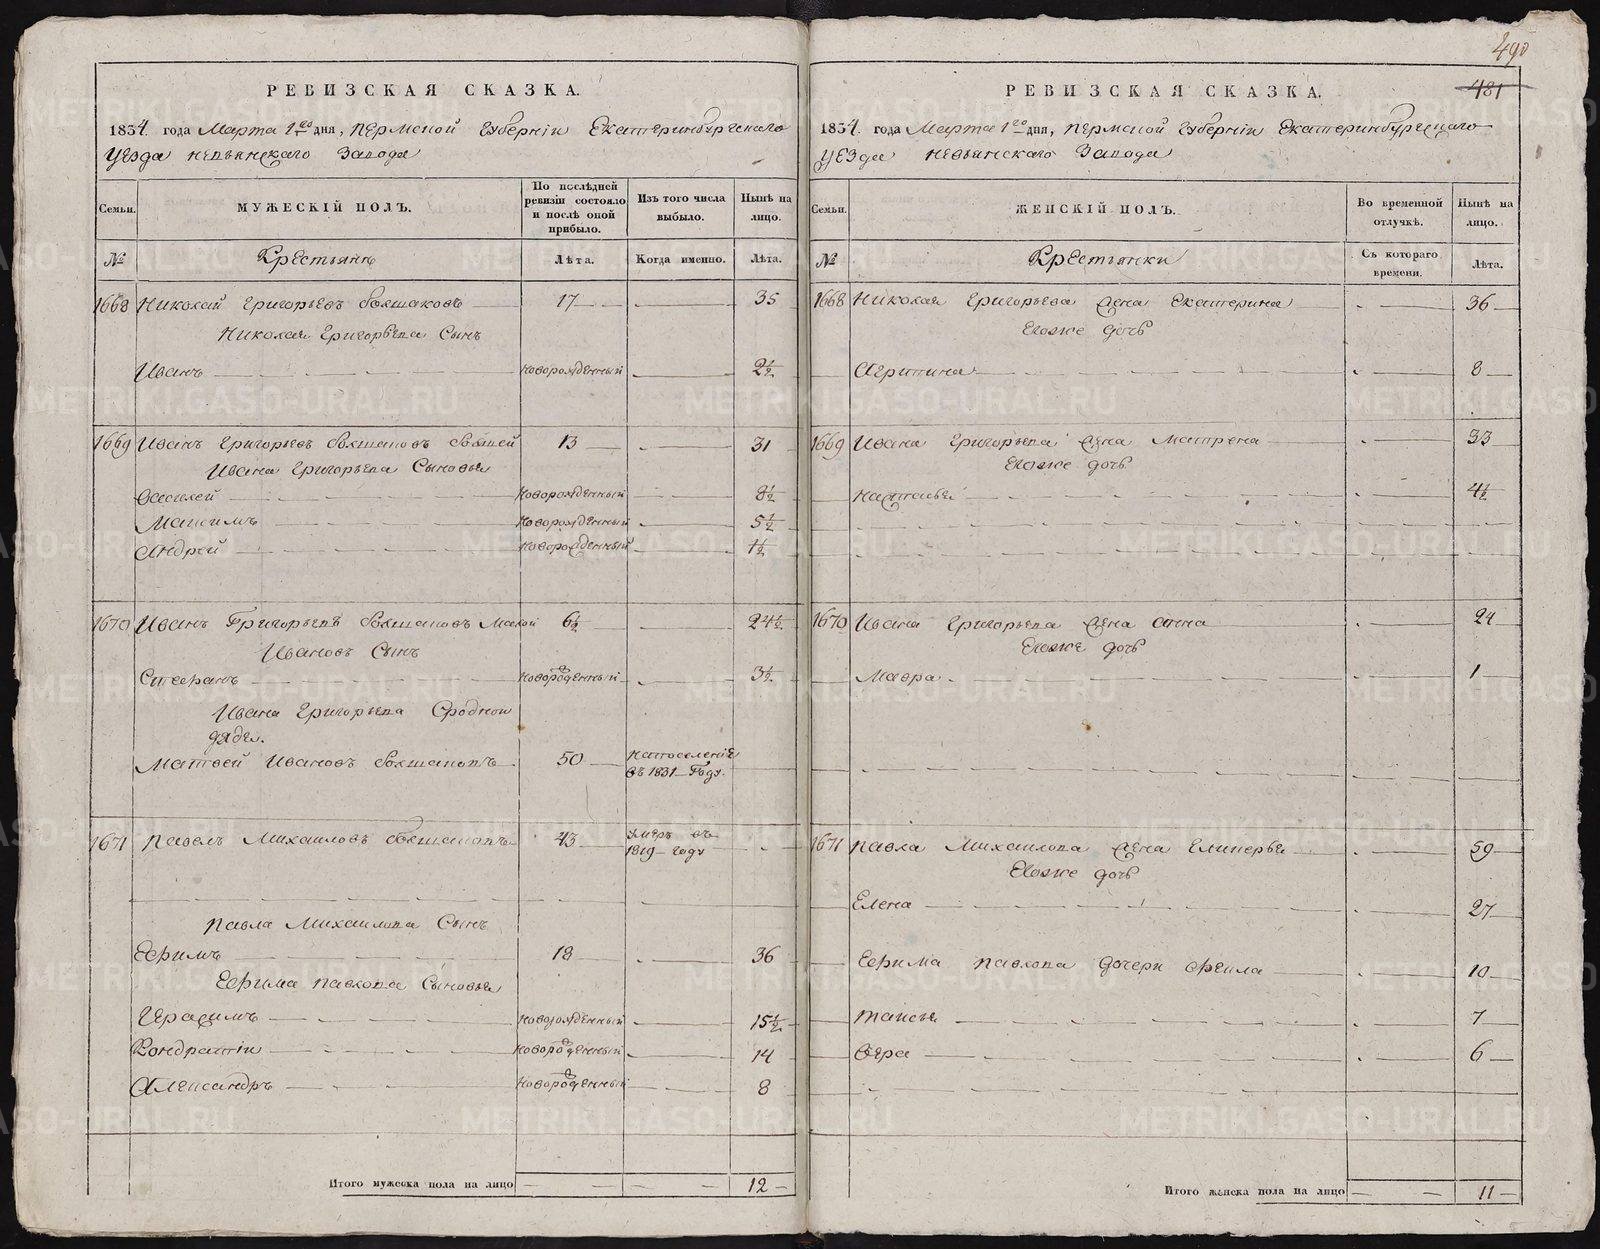 490
РЕВИЗСКАЯ СКАЗКА.
1834. года Марта 1го дня, Пермской Губерніи Екатеринбургскаго
уезда Невьянскаго Завода
Семьи.
МУЖЕСКІЙ ПОЛЪ.
По послѣдней ревизіи состояло и послѣ оной прибыло.
Изъ того числа выбыло.
Нынѣ на лицо.
№
Крестьянъ
Лѣта.
Когда именно.
Лѣта.
1668 Николай Григорьевъ Болшаковъ 17 35
Николая Григорьева Сынъ
Иванъ новорожденный 2½
1669 Иванъ Григорьевъ Болшаковъ Болшей 13 31
Ивана Григорьева Сыновья
Василей новорожденный 8½
Максимъ новорожденный 5½
Андрей новорожденный 1½
1670 Иванъ Григорьевъ Болшаковъ Малой 6½ 24½
Ивановъ Сынъ
Степанъ новорожденный 3½
Ивана Григорьева Сродной
дядя.
Матвей Ивановъ Болшаковъ 50 на поселеніе
въ 1831 Году.
1671 Павелъ Михаиловъ Болшаковъ 43 умеръ въ
1819 году
Павла Михаилова Сынъ
Ефимъ 18 36
Ефима Павлова Сыновья
Герасимъ новорожденный 15½
Кондратіи новорожденный 14
Александръ новорожденный 8
Итого мужеска пола на лицо 12
481
РЕВИЗСКАЯ СКАЗКА.
1834. года Марта 1го дня, Пермской Губерніи Екатеринбургскаго
уезда Невьянскаго Завода
Семьи.
ЖЕНСКІЙ ПОЛЪ.
Во временной отлучкѣ.
Нынѣ на лицо.
№
Крестьянки
Съ котораго времени.
Лѣта.
1668 Николая Григорьева Жена Екатерина 36
Егоже дочь
Агрипина 8
1669 Ивана Григорьева Жена Матрена 33
Егоже дочь
Настасья 4½
1670 Ивана Григорьева Жена Анна 24
Егоже дочь
Мавра 1
1671 Павла Михаилова Жена Гликерья 59
Егоже дочь
Елена 27
Ефима Павлова дочери Фекла 10
Таисья 7
Вера 6
Итого женска пола на лицо 11
METRIKI.GASO-URAL.RU